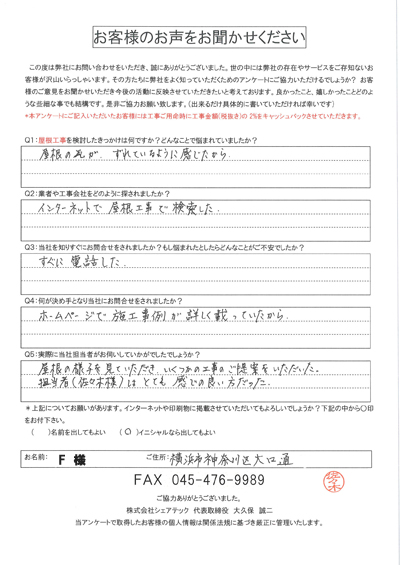 お客様のお声をお聞かせください
この度は弊社にお問い合わせをいただき、誠にありがとうございました。世の中には弊社の存在やサービスをご存知ないお
客様が沢山いらっしゃいます。その方たちに弊社をよく知っていただくためのアンケートにご協力いただけるでしょうか？ お客
様のご意見をお聞かせいただき今後の活動に反映させていただきたいと考えております。良かったこと、嬉しかったことどのよ
うな些細な事でも結構です。是非ご協力お願い致します。（出来るだけ具体的に書いていただければ幸いです）
*本アンケートにご記入いただいたお客様には工事ご用命時に工事金額(税抜き)の 2%をキャッシュバックさせていただきます。
Q1：屋根工事を検討したきっかけは何ですか？どんなことで悩まれていましたか？
屋根の瓦が、ずれているように感じたから
Q2：業者や工事会社をどのように探されましたか？
インターネットで屋根工事で検索した.
Q3：当社を知りすぐにお問合せをされましたか？もし悩まれたとしたらどんなことがご不安でしたか？
すぐに電話した.
Q4：何が決め手となり当社にお問合せをされましたか？
ホームページで施工事例が詳しく載っていたから.
Q5：実際に当社担当者がお伺いしていかがでしたでしょうか？
屋根の様子を見ていただき、いくつかの工事のご提案をいただいた。
担当者(佐々木様)はとても感じの良い方だった。
＊上記についてお願いがあります。インターネットや印刷物に掲載させていただいてもよろしいでしょうか？下記の中から〇印
をお付下さい。
（　）名前を出してもよい　（〇）イニシャルなら出してもよい
お名前： F 様 ご住所： 横浜市神奈川区大口通
FAX 045-476-9989
佐々木
ご協力ありがとうございました。
株式会社シェアテック 代表取締役 大久保 誠二
当アンケートで取得したお客様の個人情報は関係法規に基づき厳正に管理いたします。